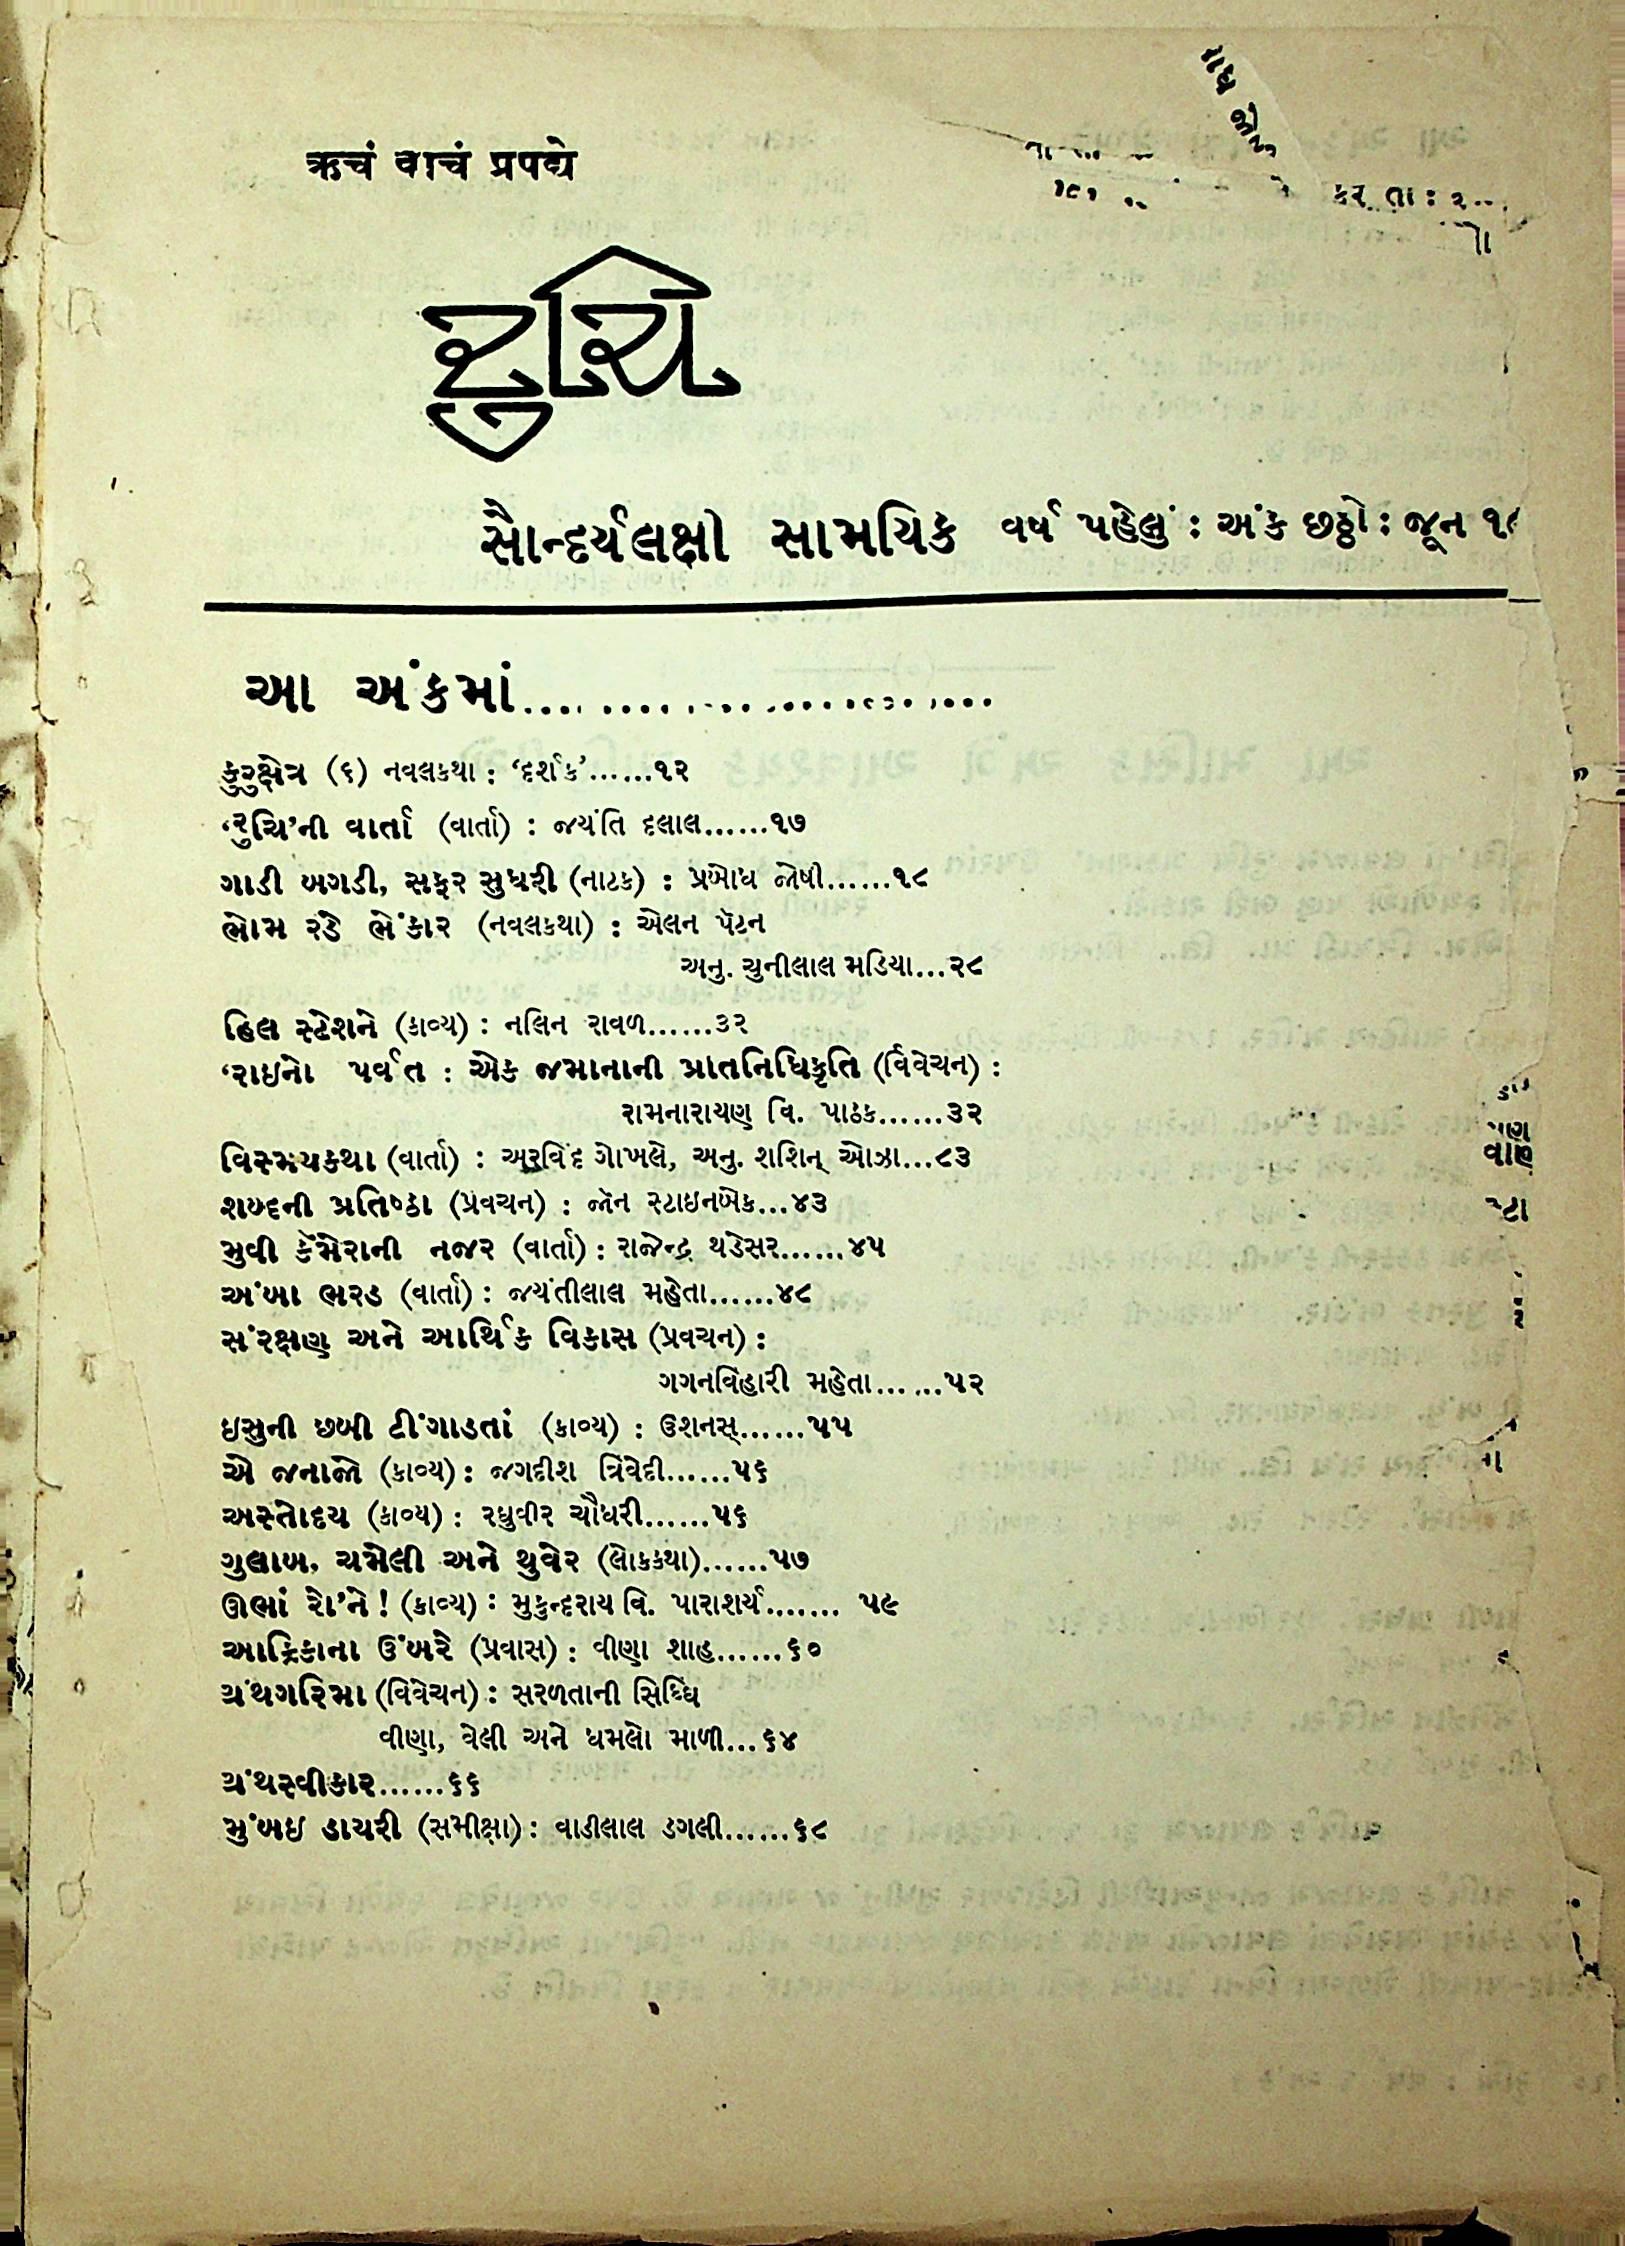 ऋचं वाचं प्रपद्ये
કર તા : ૨
રુચિ
સૌન્દર્યલક્ષી સામયિક વર્ષ પહેલું : અંક છઠ્ઠો : જૂન ૧૯
આ અંકમાં..............................
કુરુક્ષેત્ર (૬) નવલકથા : ‘દર્શક’......૧૨
‘રુચિ’ની વાર્તા (વાર્તા) : જયંતિ દલાલ......૧૭
ગાડી બગડી, સફર સુધરી (નાટક) : પ્રબોધ જોષી......૧૮
ભોમ રડે ભેંકાર (નવલકથા) : એલન પૅટન
અનુ. ચુનીલાલ મડિયા...૨૮
હિલ સ્ટેશને (કાવ્ય) : નલિન રાવળ......૩૨
‘રાઇનો પર્વત : એક જમાનાની પ્રાતનિધિકૃતિ (વિવેચન) :
રામનારાયણ વિ. પાઠક......૩૨
વિસ્મયકથા (વાર્તા) : અરવિંદ ગોખલે, અનુ. શશિન્ ઓઝા...૮૩
શબ્દની પ્રતિષ્ઠા (પ્રવચન) : જૉન સ્ટાઇનબેક...૪૩
મુવી કૅમેરાની નજર (વાર્તા) : રાજેન્દ્ર થડેસર......૪૫
અંબા ભરડ (વાર્તા) : જયંતીલાલ મહેતા......૪૮
સંરક્ષણ અને આર્થિક વિકાસ (પ્રવચન) :
ગગનવિહારી મહેતા......૫૨
ઇસુની છબી ટીંગાડતાં (કાવ્ય) : ઉશનસ્......૫૫
એ જનાજો (કાવ્ય) : જગદીશ ત્રિવેદી......૫૬
અસ્તોદય (કાવ્ય) : રઘુવીર ચૌધરી......૫૬
ગુલાબ, ચમેલી અને થુવેર (લોકકથા)......૫૭
ઊભાં રો’ને ! (કાવ્ય) : મુકુન્દરાય વિ. પારાશર્ય....... ૫૯
આફ્રિકાના ઉંબરે (પ્રવાસ) : વીણા શાહ......૬૦
ગ્રંથગરિમા (વિવેચન) : સરળતાની સિદ્ધિ
વીણા, વેલી અને ધમલો માળી...૬૪
ગ્રંથસ્વીકાર......૬૬
મુંબઇ ડાયરી (સમીક્ષા) : વાડીલાલ ડગલી......૬૮